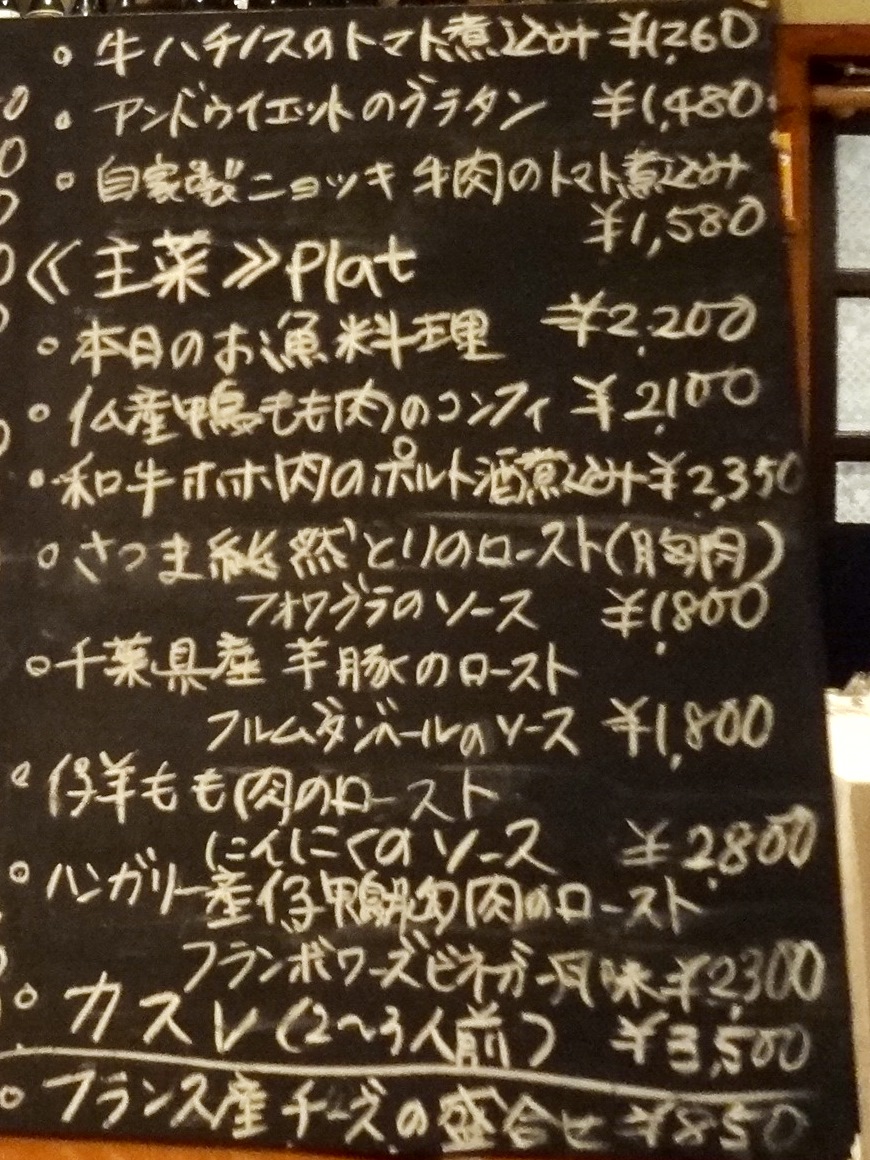 • 牛ハチノスのトマト煮込み ¥1,260
• アンドゥイエットのグラタン ¥1,480
• 自家製ニョッキ 牛肉のトマト煮込み
¥1,580
≪主菜≫ Plat
• 本日のお漁料理 ¥2,200
• 仏産鴨もも肉のコンフィ ¥2,100
• 和牛ホホ肉のポルト酒煮込み ¥2,350
• さつま純然どりのロースト(胸肉)
フォワグラのソース ¥1,800
• 千葉県産 羊豚のロースト
フルムダンベールのソース ¥1,800
• 仔羊もも肉のロースト
にんにくのソース ¥2,800
• ハンガリー産仔鴨胸肉のロースト
フランボワーズビネガー風味 ¥2,300
• カスレ(2〜3人前) ¥3,500
• フランス産チーズの盛合せ ¥850